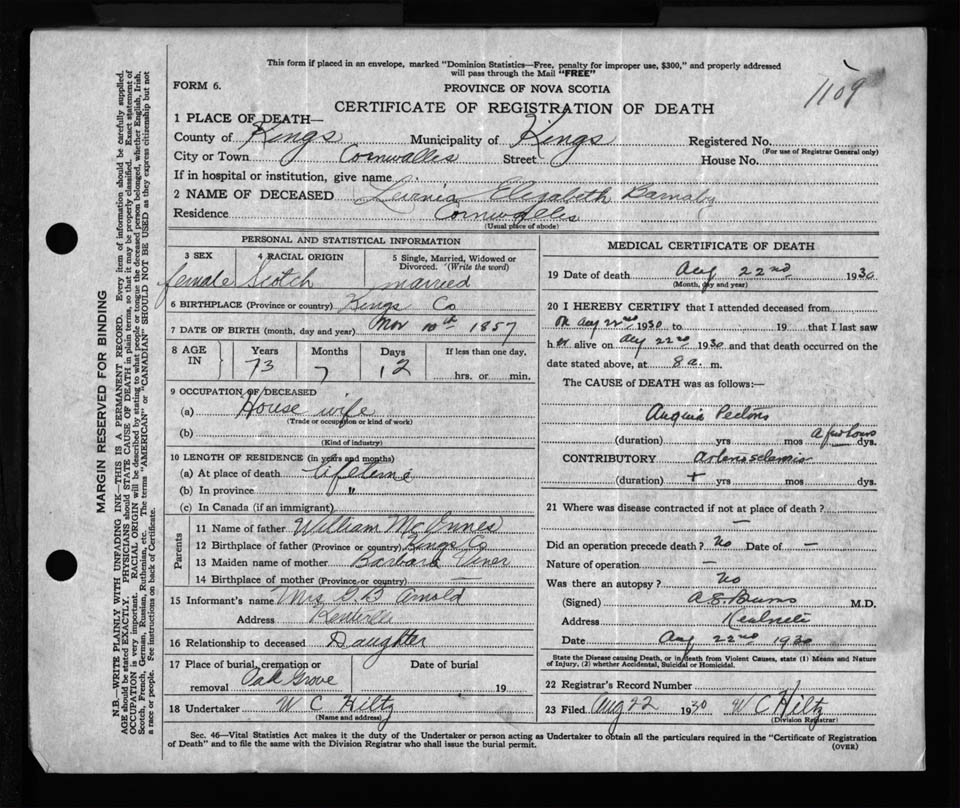 This form if placed in an envelope, marked "Dominion Statistics—Free, penalty for improper use, $300," and properly addressed
will pass through the Mail "FREE"
FORM 6.
PROVINCE OF NOVA SCOTIA
1109
CERTIFICATE OF REGISTRATION OF DEATH
1 PLACE OF DEATH—
County of Kings Municipality of Kings Registered No.
(For use of Registrar General only)
City or Town Cornwallis Street House No.
If in hospital or institution, give name
2 NAME OF DECEASED Elizabeth Barnaby
Residence Cornwallis
(Usual place of abode)
PERSONAL AND STATISTICAL INFORMATION
3 SEX 4 RACIAL ORIGIN 5 Single, Married, Widowed or Divorced. (Write the word)
female Scotch married
6 BIRTHPLACE (Province or country) Kings Co
7 DATE OF BIRTH (month, day and year) Nov 10th 1857
8 AGE IN Years Months Days If less than one day,
73 7 12 hrs. or min.
9 OCCUPATION OF DECEASED
(a) House wife
(Trade or occupation or kind of work)
(b)
(Kind of industry)
10 LENGTH OF RESIDENCE (in years and months)
(a) At place of death Lifetime
(b) In province "
(c) In Canada (if an immigrant)
Parents
11 Name of father William McInnes
12 Birthplace of father (Province or country) Kings Co
13 Maiden name of mother Barbara
14 Birthplace of mother (Province or country) —
15 Informant's name Mrs. G. D Arnold
Address Kentville
16 Relationship to deceased Daughter
17 Place of burial, cremation or removal Oak Grove Date of burial 19
18 Undertaker W C Hiltz
(Name and address)
MEDICAL CERTIFICATE OF DEATH
19 Date of death Aug 22nd 1930
(Month, day and year)
20 I HEREBY CERTIFY that I attended deceased from
on Aug 22nd 1930 to 19 that I last saw
her alive on Aug 22nd 1930 and that death occurred on the
date stated above, at 8 a. m.
The CAUSE of DEATH was as follows:—
Angina Pectoris
(duration) yrs mos a few hours dys.
CONTRIBUTORY Arteriosclerosis
(duration) + yrs mos dys.
21 Where was disease contracted if not at place of death?
—
Did an operation precede death? No Date of —
Nature of operation —
Was there an autopsy? No
(Signed) A.S. Burns M.D.
Address Kentville
Date Aug 22nd 1930
State the Disease causing Death, or in death from Violent Causes, state (1) Means and Nature
of Injury, (2) whether Accidental, Suicidal or Homicidal.
22 Registrar's Record Number
23 Filed Aug 22 1930 W C Hiltz
(Division Registrar)
Sec. 46—Vital Statistics Act makes it the duty of the Undertaker or person acting as Undertaker to obtain all the particulars required in the "Certificate of Registration
of Death" and to file the same with the Division Registrar who shall issue the burial permit.
(OVER)
MARGIN RESERVED FOR BINDING
N.B.—WRITE PLAINLY WITH UNFADING INK—THIS IS A PERMANENT RECORD. Every item of information should be carefully supplied.
AGE should be stated EXACTLY. PHYSICIANS should STATE CAUSE OF DEATH in plain terms, so that it may be properly classified. Exact statement of
OCCUPATION is very important. RACIAL ORIGIN will be described by stating to what people or tongue the deceased person belonged, whether English, Irish,
Scotch, French, German, Russian, Ruthenian, etc. The terms "AMERICAN" or "CANADIAN" SHOULD NOT BE USED as they express citizenship but not
a race or people. See instructions on back of Certificate.